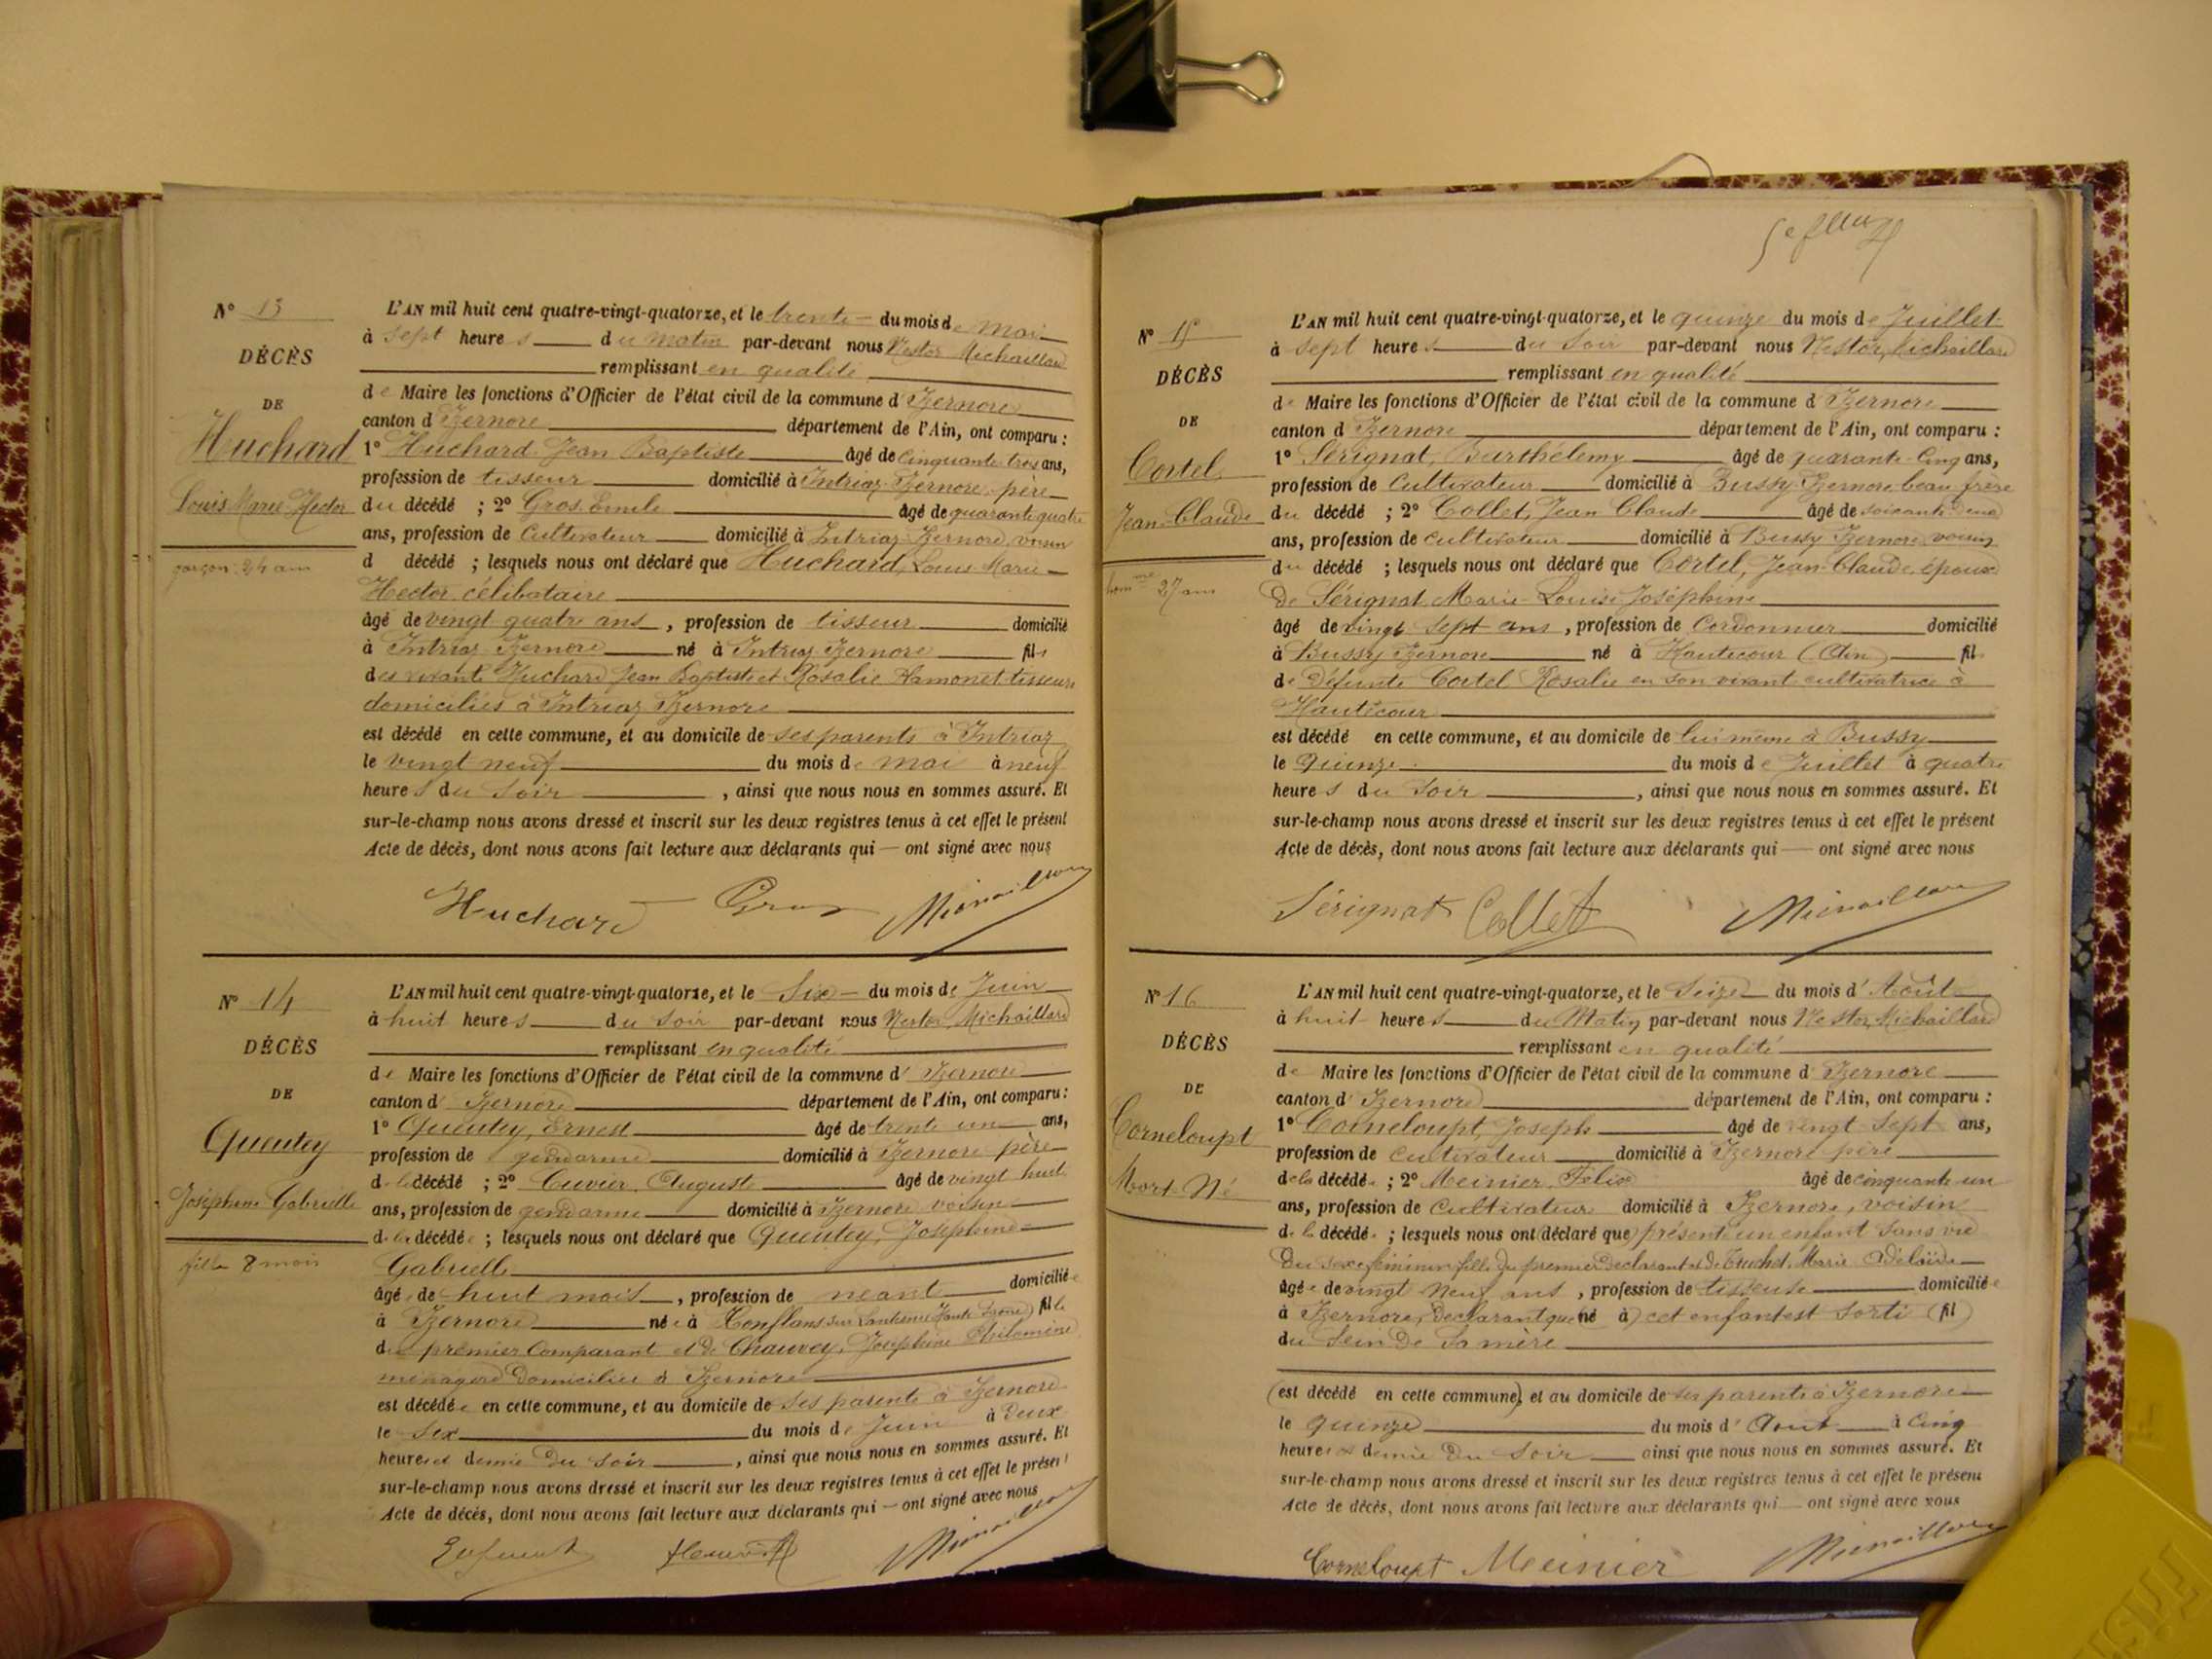 N° 13
DÉCÈS
DE
Huchard
Louis Marie Hector
garçon 24 ans
L'AN mil huit cent quatre-vingt-quatorze, et le trente du mois de Mai
à sept heures du Matin par-devant nous Nestor Michaillard
remplissant en qualité
de Maire les fonctions d'Officier de l'état civil de la commune d'Izernore
canton d'Izernore département de l'Ain, ont comparu :
1° Huchard Jean Baptiste âgé de Cinquante trois ans,
profession de tisseur domicilié à Intriaz Izernore père
du décédé ; 2° Gros Emile âgé de quarante quatre
ans, profession de Cultivateur domicilié à Intriaz Izernore, voisin
d décédé ; lesquels nous ont déclaré que Huchard, Louis Marie
Hector célibataire
âgé de vingt quatre ans, profession de tisseur domicilié
à Intriaz Izernore né à Intriaz Izernore fils
des vivants Huchard Jean Baptiste et Rosalie Hamonet tisseurs
domiciliés à Intriaz Izernore
est décédé en cette commune, et au domicile de ses parents à Intriaz
le vingt neuf du mois de mai à neuf
heures du Soir, ainsi que nous nous en sommes assuré. Et
sur-le-champ nous avons dressé et inscrit sur les deux registres tenus à cet effet le présent
Acte de décès, dont nous avons fait lecture aux déclarants qui — ont signé avec nous
Huchard Gros Michaillard
N° 14
DÉCÈS
DE
Queutey
Joséphine Gabrielle
fille 8 mois
L'AN mil huit cent quatre-vingt-quatorze, et le Six du mois de Juin
à huit heures du Soir par-devant nous Nestor Michaillard
remplissant en qualité
de Maire les fonctions d'Officier de l'état civil de la commvne d'Izernore
canton d'Izernore département de l'Ain, ont comparu :
1° Queutey, Ernest âgé de trente un ans,
profession de gendarme domicilié à Izernore père
de la décédé ; 2° Cuvier, Auguste âgé de vingt huit
ans, profession de gendarme domicilié à Izernore voisin
de la décédée ; lesquels nous ont déclaré que Queutey, Joséphine
Gabrielle
âgée de huit mois, profession de néant domiciliée
à Izernore née à Conflans sur Lanterne (Haute Saône) fille
du premier Comparant et de Chauvey, Joséphine Philomène
ménagère domiciliés à Izernore
est décédée en cette commune, et au domicile de ses parents à Izernore
le Six du mois de Juin à Deux
heures et demie Du Soir, ainsi que nous nous en sommes assuré. Et
sur-le-champ nous avons dressé et inscrit sur les deux registres tenus à cet effet le présent
Acte de décès, dont nous avons fait lecture aux déclarants qui — ont signé avec nous
Michaillard
5e feuillet
N° 15
DÉCÈS
DE
Cortel
Jean-Claude
homme 27 ans
L'AN mil huit cent quatre-vingt-quatorze, et le quinze du mois de Juillet
à Sept heures du Soir par-devant nous Nestor, Michaillard
remplissant en qualité
de Maire les fonctions d'Officier de l'état civil de la commune d'Izernore
canton d'Izernore département de l'Ain, ont comparu :
1° Sérignat, Barthélemy âgé de quarante-Cinq ans,
profession de Cultivateur domicilié à Bussy-Izernore beau frère
du décédé ; 2° Collet, Jean Claude âgé de soixante deux
ans, profession de cultivateur domicilié à Bussy Izernore voisin
du décédé ; lesquels nous ont déclaré que Cortel, Jean-Claude, époux
De Sérignat Marie-Louise Joséphine
âgé de vingt Sept ans, profession de Cordonnier domicilié
à Bussy Izernore né à Hautecour (Ain) fil
de Défunte Cortel Rosalie en son vivant cultivatrice à
Hautecour
est décédé en cette commune, et au domicile de lui même à Bussy
le Quinze du mois de Juillet à quatre
heures du Soir, ainsi que nous nous en sommes assuré. Et
sur-le-champ nous avons dressé et inscrit sur les deux registres tenus à cet effet le présent
Acte de décès, dont nous avons fait lecture aux déclarants qui — ont signé avec nous
Sérignat Collet Michaillard
N° 16
DÉCÈS
DE
Corneloupt
Mort Né
L'AN mil huit cent quatre-vingt-quatorze, et le Seize du mois d'Août
à huit heures du Matin par-devant nous Nestor, Michaillard
remplissant en qualité
de Maire les fonctions d'Officier de l'état civil de la commune d'Izernore
canton d'Izernore département de l'Ain, ont comparu :
1° Corneloupt, Joseph âgé de vingt Sept ans,
profession de Cultivateur domicilié à Izernore père
de la décédée ; 2° Meinier, Félix âgé de cinquante un
ans, profession de Cultivateur domicilié à Izernore, voisin
de la décédée ; lesquels nous ont (déclaré que) présenté un enfant Sans vie
Du sexe féminin fille Du premier Déclarant et de Truchet, Marie Adélaïde
âgée de vingt Neuf ans, profession de tisseuse domiciliée
à Izernore, Déclarant que (né à) cet enfant est Sorti (fil)
du Sein De Sa mère
(est décédé en cette commune) et au domicile de ses parents à Izernore
le quinze du mois d'Août à Cinq
heures et demie Du Soir ainsi que nous nous en sommes assuré. Et
sur-le-champ nous avons dressé et inscrit sur les deux registres tenus à cet effet le présent
Acte de décès, dont nous avons fait lecture aux déclarants qui — ont signé avec nous
Corneloupt Meinier Michaillard